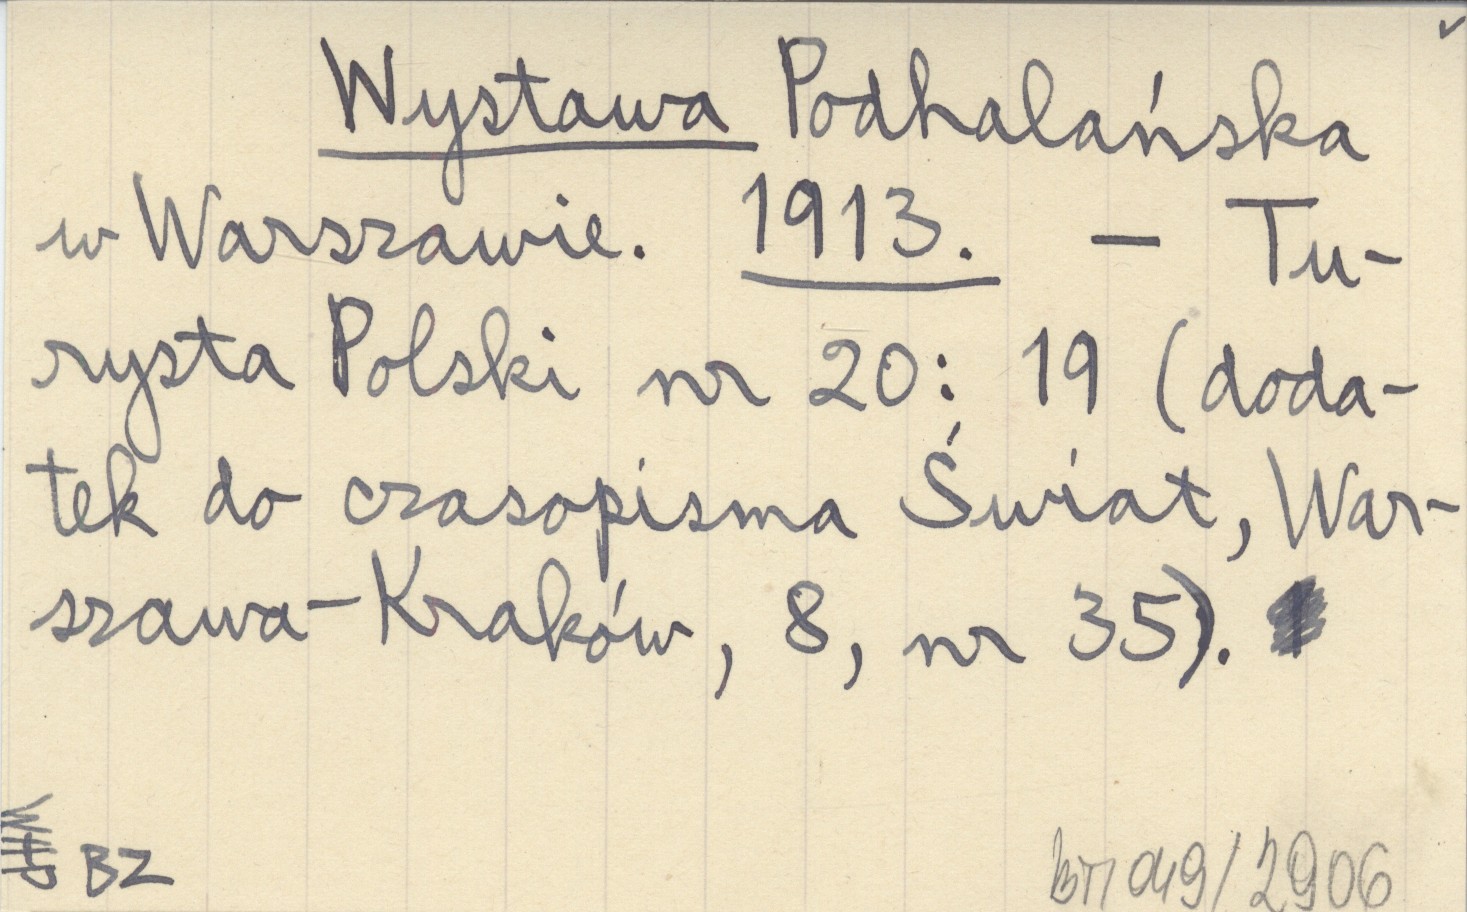 Wystawa Podhalańska
w Warszawie. 1913. – Tu-
rysta Polski nr 20: 19 (doda-
tek do czasopisma Świat, War-
szawa-Kraków, 8, nr 35).
BZ
/2906